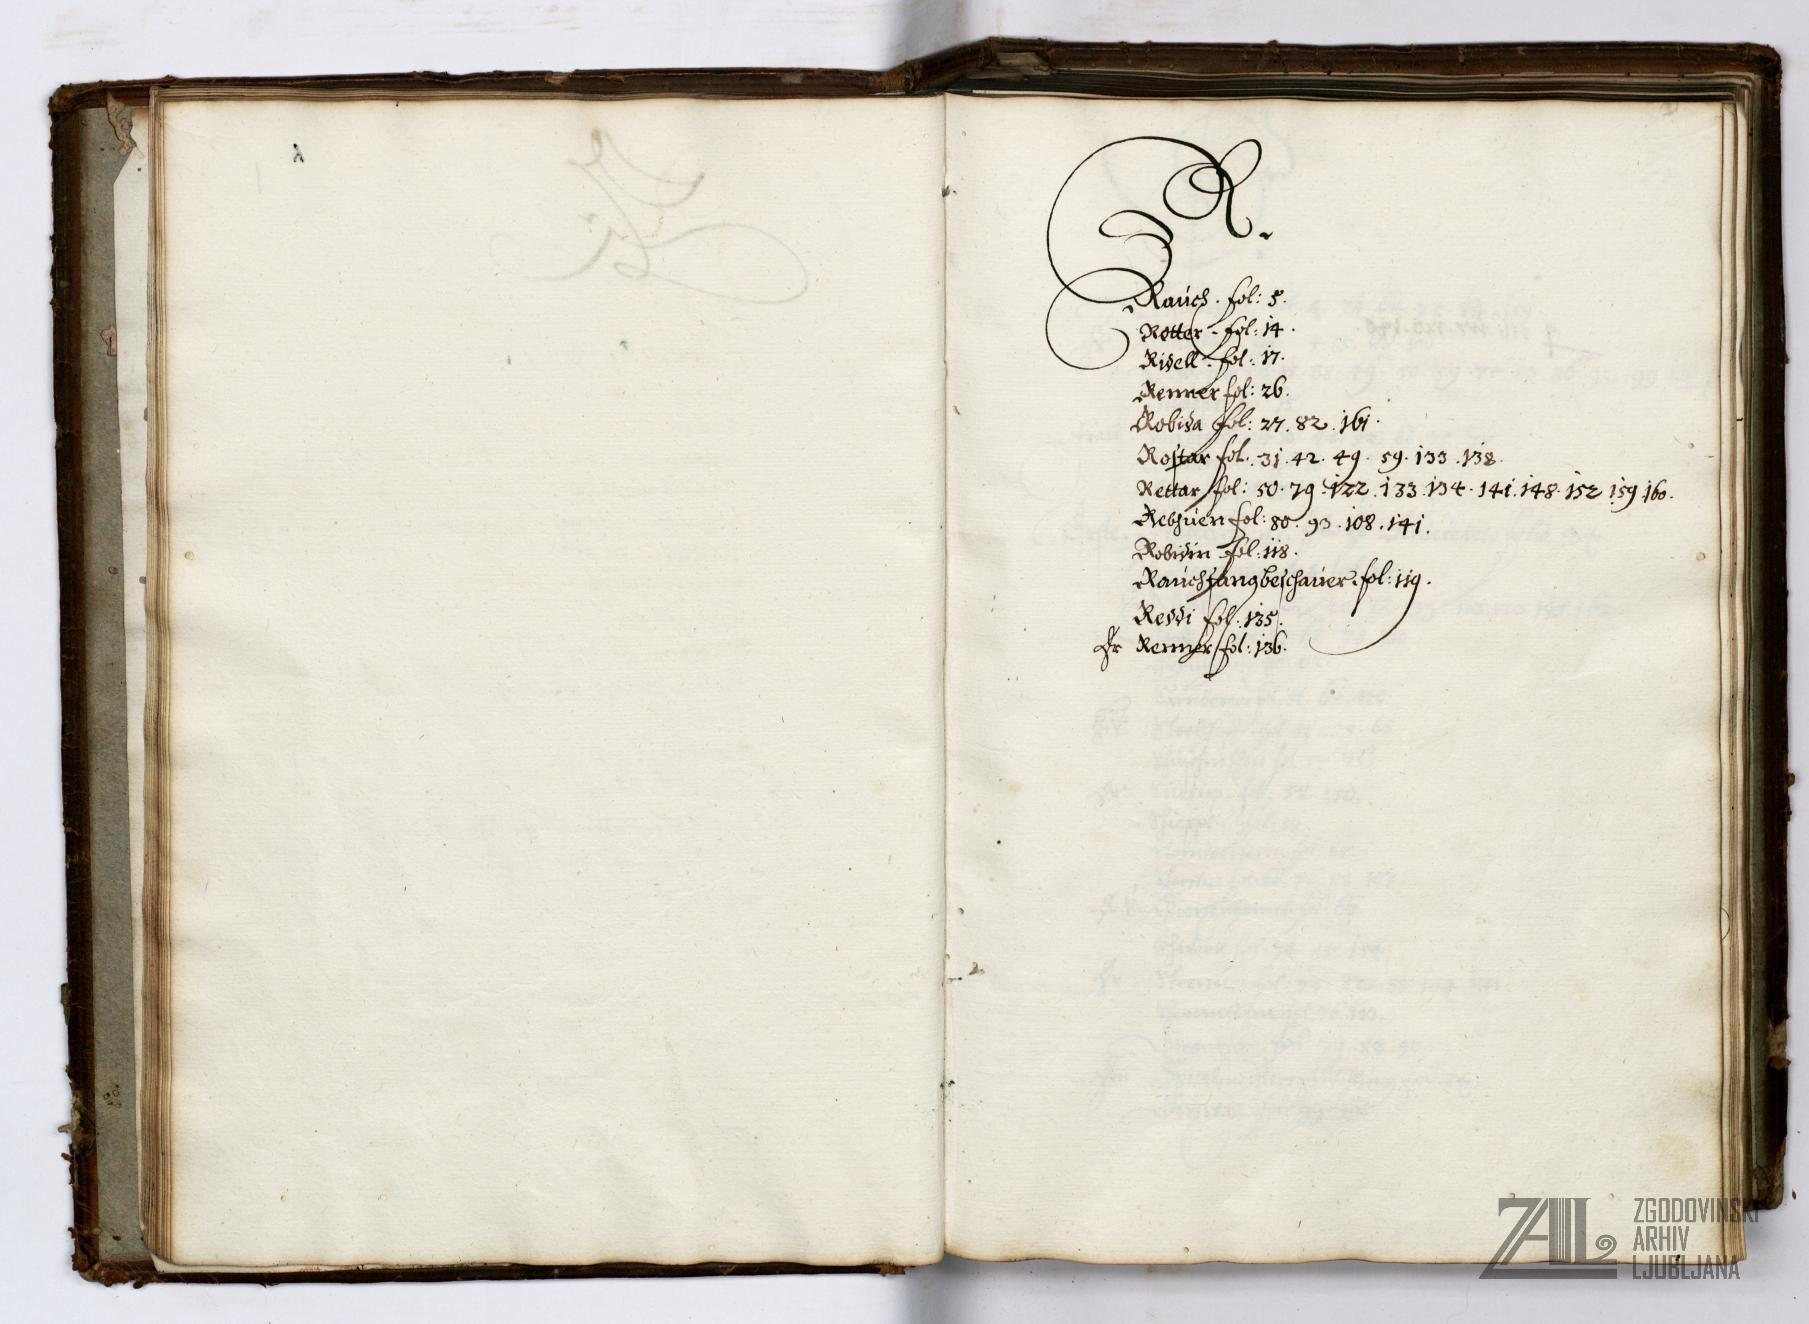 R.
Rauch. fol: 5.
Rotter. fol: 14.
Ridell. fol: 17.
Renner fol: 26.
Robida fol: 27. 82. 161.
Rostar fol. 31. 42. 49. 59. 133. 138.
Rettar fol: 50. 79. 122. 133. 134. 141. 148. 152 159 160.
Rebhuen fol: 80. 93. 108. 141.
Robidin fol: 118.
Rauchfangbeschauer. fol: 119.
Reddi fol: 135.
Fr Renner fol: 136.
ZAL
ZGODOVINSKI
ARHIV
LJUBLJANA